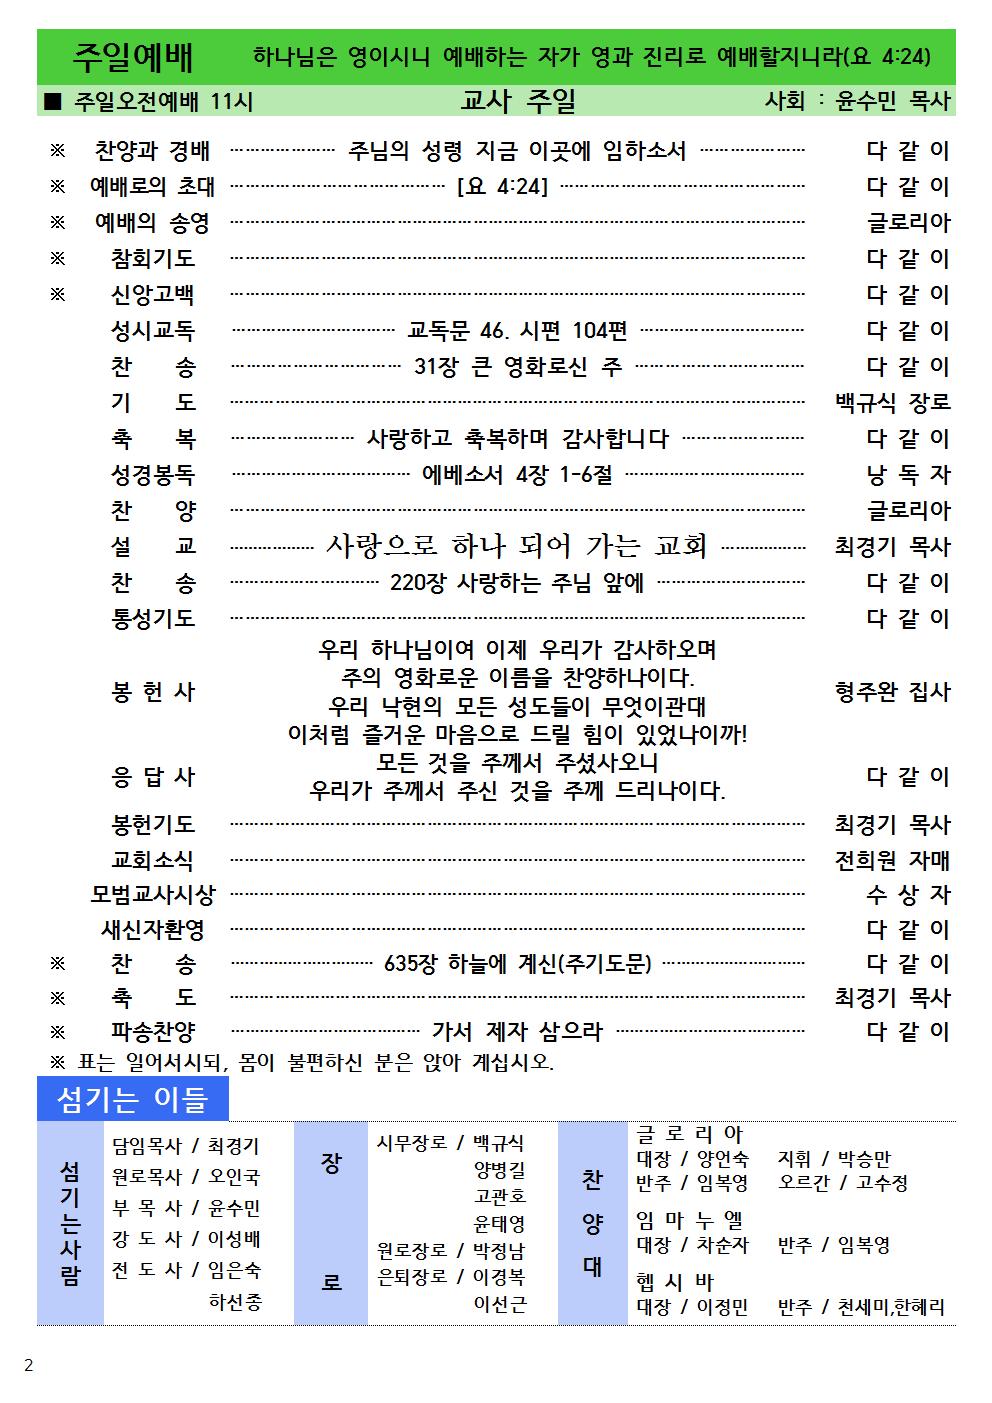 주일예배 하나님은 영이시니 예배하는 자가 영과 진리로 예배할지니라(요 4:24)
■ 주일오전예배 11시 교사 주일 사회 : 윤수민 목사
※ 찬양과 경배 ………………… 주님의 성령 지금 이곳에 임하소서 ………………… 다 같 이
※ 예배로의 초대 …………………………………… [요 4:24] ………………………………………… 다 같 이
※ 예배의 송영 …………………………………………………………………………………………………… 글로리아
※ 참회기도 …………………………………………………………………………………………………… 다 같 이
※ 신앙고백 …………………………………………………………………………………………………… 다 같 이
성시교독 …………………………… 교독문 46. 시편 104편 …………………………… 다 같 이
찬 송 …………………………… 31장 큰 영화로신 주 …………………………… 다 같 이
기 도 …………………………………………………………………………………………………… 백규식 장로
축 복 …………………… 사랑하고 축복하며 감사합니다 …………………… 다 같 이
성경봉독 ……………………………… 에베소서 4장 1-6절 ……………………………… 낭 독 자
찬 양 …………………………………………………………………………………………………… 글로리아
설 교 ……………… 사랑으로 하나 되어 가는 교회 ……………… 최경기 목사
찬 송 ………………………… 220장 사랑하는 주님 앞에 ………………………… 다 같 이
통성기도 …………………………………………………………………………………………………… 다 같 이
우리 하나님이여 이제 우리가 감사하오며
주의 영화로운 이름을 찬양하나이다.
봉 헌 사 형주완 집사
우리 낙현의 모든 성도들이 무엇이관대
이처럼 즐거운 마음으로 드릴 힘이 있었나이까!
모든 것을 주께서 주셨사오니
응 답 사 다 같 이
우리가 주께서 주신 것을 주께 드리나이다.
봉헌기도 …………………………………………………………………………………………………… 최경기 목사
교회소식 …………………………………………………………………………………………………… 전희원 자매
모범교사시상 …………………………………………………………………………………………………… 수 상 자
새신자환영 …………………………………………………………………………………………………… 다 같 이
※ 찬 송 ………………………… 635장 하늘에 계신(주기도문) ………………………… 다 같 이
※ 축 도 …………………………………………………………………………………………………… 최경기 목사
※ 파송찬양 ………………………………… 가서 제자 삼으라 ………………………………… 다 같 이
※ 표는 일어서시되, 몸이 불편하신 분은 앉아 계십시오.
섬기는 이들
섬기는사람
담임목사 / 최경기
원로목사 / 오인국
부 목 사 / 윤수민
강 도 사 / 이성배
전 도 사 / 임은숙
하선종
장로
시무장로 / 백규식
양병길
고관호
윤태영
원로장로 / 박정남
은퇴장로 / 이경복
이선근
찬양대
글 로 리 아
대장 / 양언숙 지휘 / 박승만
반주 / 임복영 오르간 / 고수정
임 마 누 엘
대장 / 차순자 반주 / 임복영
헵 시 바
대장 / 이정민 반주 / 천세미,한혜리
2